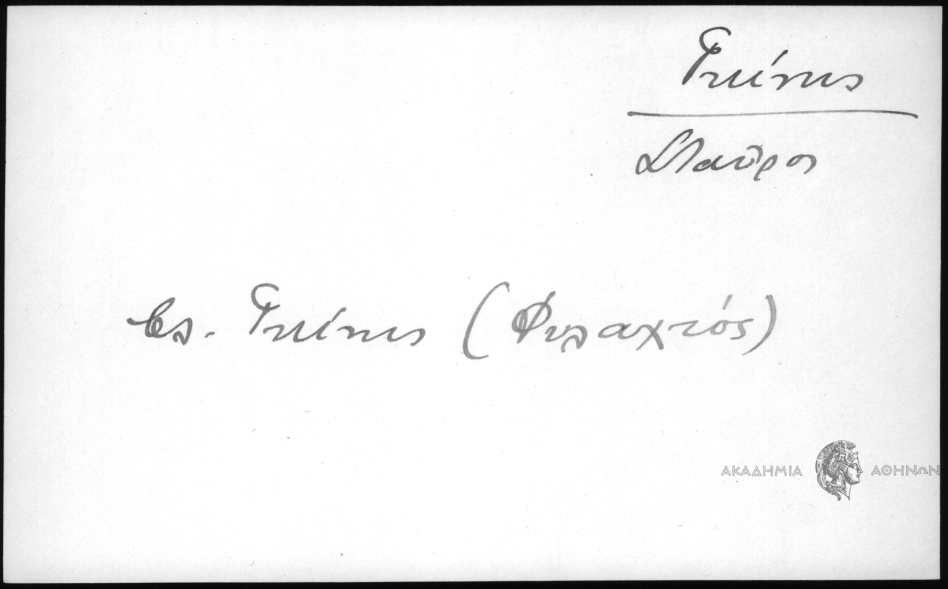 Γκίνης
Σταῦρος
βλ. Γκίνης (Φυλαχτός)
ΑΚΑΔΗΜΙΑ ΑΘΗΝΩΝ